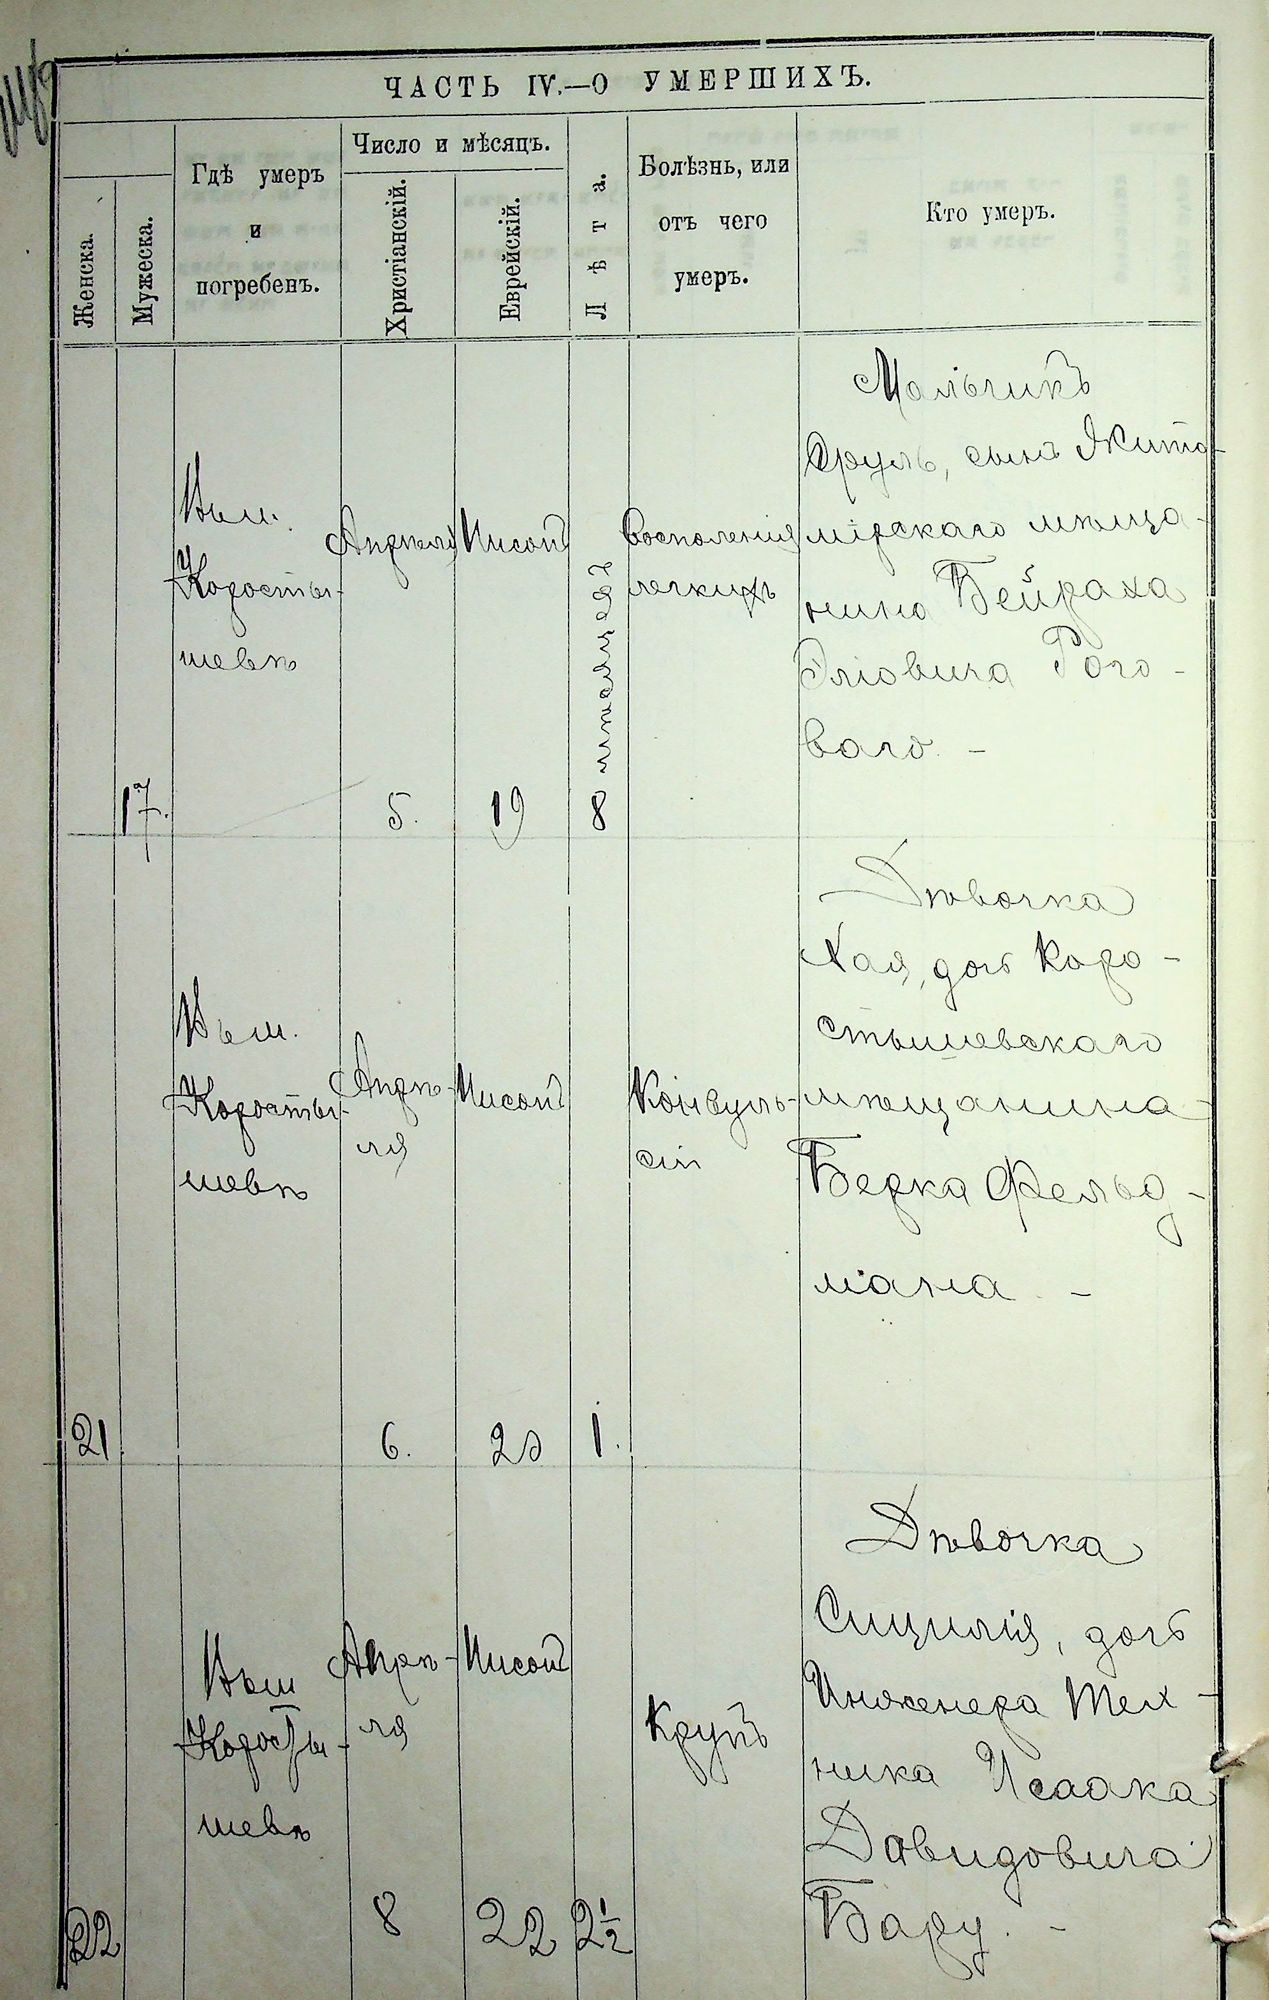 ЧАСТЬ IV.—О УМЕРШИХЪ.
Женска.
Мужеска.
Гдѣ умеръ
и
погребенъ.
Число и мѣсяцъ.
Христіанскій.
Еврейскій.
Лѣта.
Болѣзнь, или
отъ чего
умеръ.
Кто умеръ.
17.
Въ м.
Коросты-
шевѣ
Апрѣля
5.
Нисонъ
19
8 мѣсяцевъ
Воспаленія
легкихъ
Мальчикъ
Сруль, сынъ Жито-
мірскаго мѣща-
нина Бейраха
Эліовича Рого-
ваго. -
21.
Въ м.
Коросты-
шевѣ
Апрѣ-
ля
6.
Нисонъ
20
1.
Конвуль-
сіи
Дѣвочка
Хая, дочь Коро-
стышевскаго
мѣщанина
Берка Фельд-
мана. -
22
Въ м
Коросты-
шевѣ
Апрѣ-
ля
8
Нисонъ
22
2½
Крупъ
Дѣвочка
Сицилія, дочь
Инженера Тех-
ника Исаака
Давидовича
Бару. -